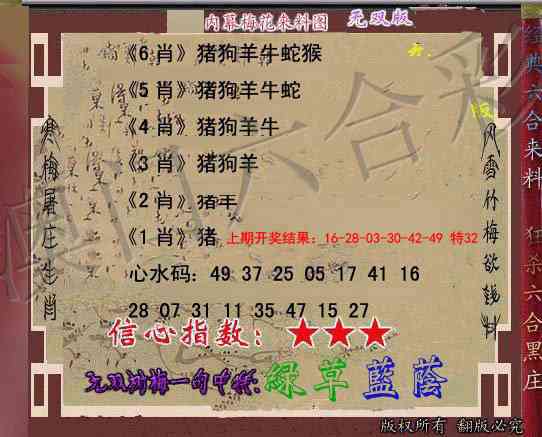 内幕梅花来料图 无双版
《6 肖》猪狗羊牛蛇猴
《5 肖》猪狗羊牛蛇
《4 肖》猪狗羊牛
《3 肖》猪狗羊
《2 肖》猪羊
《1 肖》猪 上期开奖结果：16-28-03-30-42-49 特32
心水码：49 37 25 05 17 41 16
28 07 31 11 35 47 15 27
信心指数：★★★
无双刘梅一句中特:绿草蓝荫
版权所有 翻版必究
寒梅屠庄生肖
风雪竹梅欲钱料
经典六合来料 狂杀六合黑庄
澳门六合彩
版